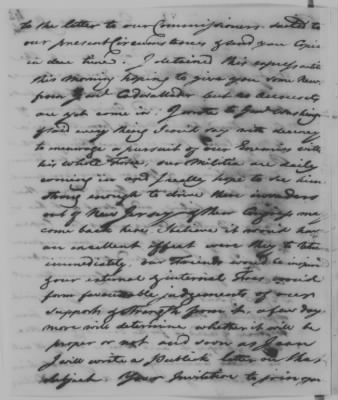 to the letter to our Commissioners suited to
our present Circumstances & send you Copies
in due time. I detained this express until
this Morning hoping to give you some News
from Genl Cadwallader but no accounts
are yet come in. I wrote to Genl Washington
& said every thing I could say with decency
to encourage a pursuit of our Enemies with
his whole Force, our Militia are daily
coming in and I really hope to see him
strong enough to drive these invaders
out of New Jersey, if then Congress
come back here. I believe it would have
an excellent effect were they to
immediately, our Friends would be
your external & internal Foes would
form favourable judgements of our
support & strength from it, a few days
more will determine whether it will be
proper or not and soon as I can
I will write a Publick letter on that
subject. Your Invitation to join you